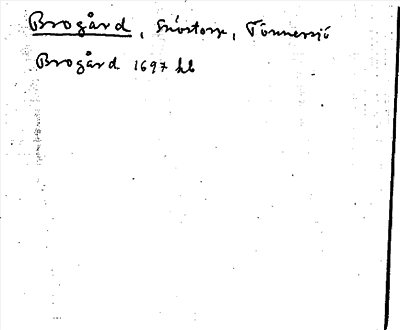 Brogård, Snöstorp, Tönnersjö
Brogård 1697 hb